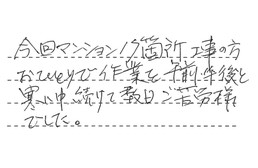 今回マンション15箇所工事の方
おひとりで作業を午前午後と
寒い中続けて数日ご苦労様
でした。